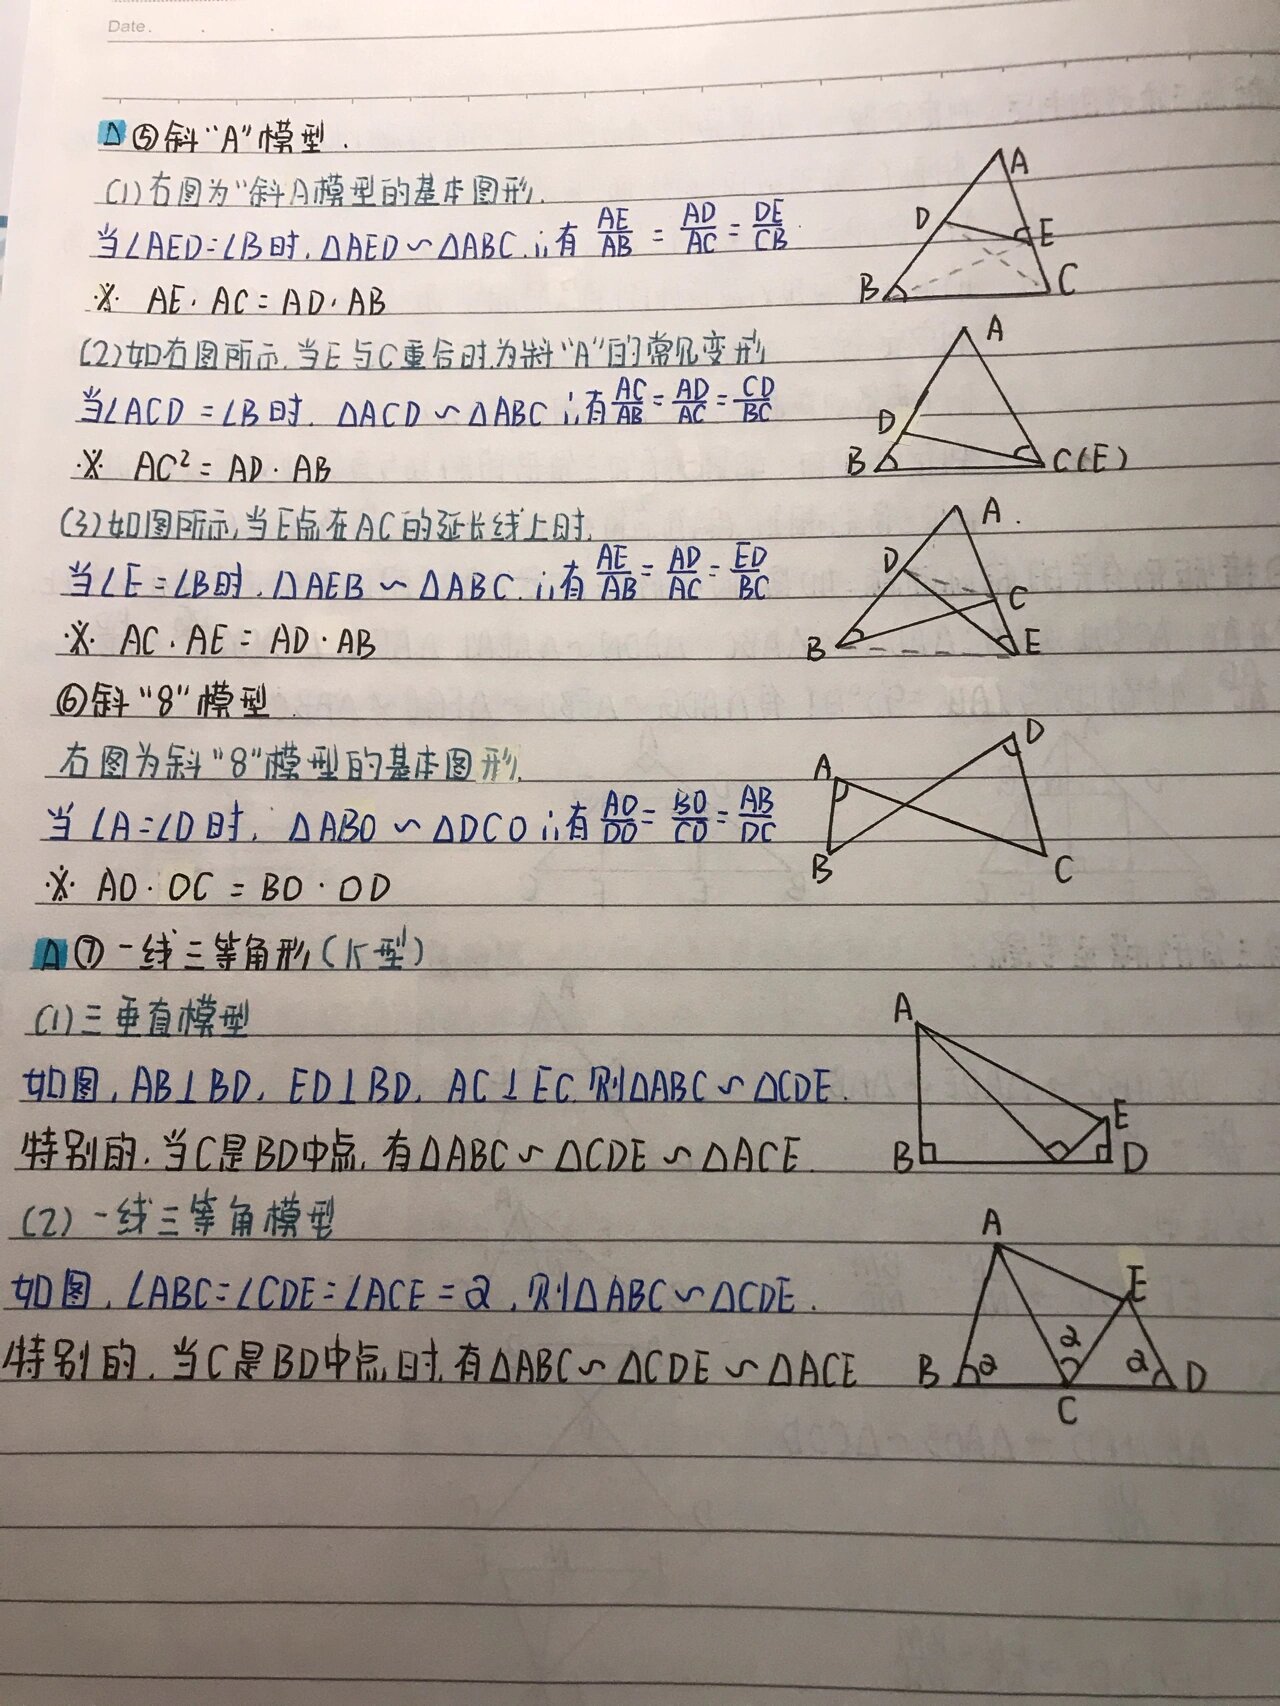 Date.
△⑤斜"A"模型.
(1)右图为"斜A模型的基本图形.
当∠AED=∠B时,△AED∽△ABC ∴有 AE/AB = AD/AC = DE/CB
※ AE·AC=AD·AB
(2)如右图所示,当E与C重合时为斜"A"的常见变形
当∠ACD=∠B时,△ACD∽△ABC ∴有 AC/AB = AD/AC = CD/BC
※ AC²=AD·AB
(3)如图所示,当E点在AC的延长线上时,
当∠E=∠B时,△AEB∽△ABC ∴有 AE/AB = AD/AC = ED/BC
※ AC·AE=AD·AB
⑥斜"8"模型.
右图为斜"8"模型的基本图形,
当∠A=∠D时,△ABO∽△DCO ∴有 AO/DO = BO/CO = AB/DC
※ AO·OC=BO·OD
△⑦一线三等角形(K型)
(1)三垂直模型
如图,AB⊥BD,ED⊥BD,AC⊥EC,则△ABC∽△CDE.
特别的,当C是BD中点,有△ABC∽△CDE∽△ACE.
(2)一线三等角模型
如图,∠ABC=∠CDE=∠ACE=2,则△ABC∽△CDE.
特别的,当C是BD中点时,有△ABC∽△CDE∽△ACE
A
D
E
B
C
A
D
B
C(E)
A.
D
C
B
E
D
A
B
C
A
E
B
D
A
E
2
B
2
2
D
C